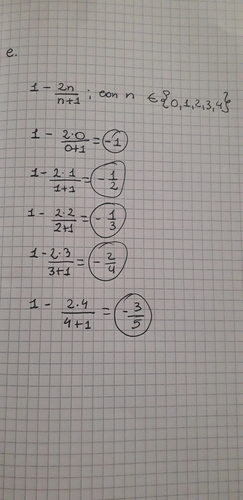 e.
1 - 2n/n+1 ; con n ∈ {0,1,2,3,4}
1 - 2·0/0+1 = -1
1 - 2·1/1+1 = -1/2
1 - 2·2/2+1 = -1/3
1 - 2·3/3+1 = -2/4
1 - 2·4/4+1 = -3/5